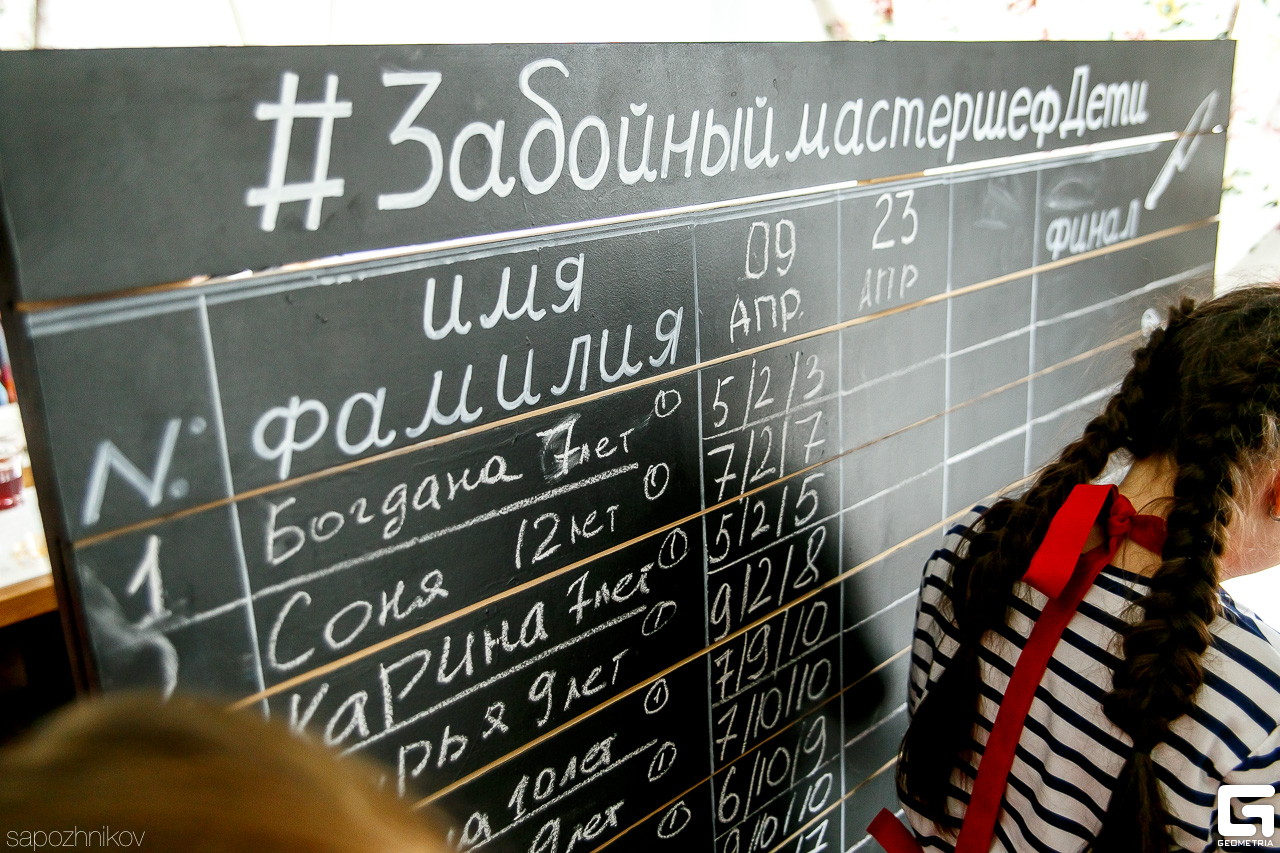 #ЗабойныймастершефДети
№ имя фамилия 09 АПР. 23 АПР финал
1 Богдана 7лет ① 5/2/3
2 Соня 12лет ① 7/2/7
Карина 7лет ① 5/2/5
рья 9лет ① 9/2/8
на 10лет ① 7/9/10
9лет ① 7/10/10
① 6/10/9
9/10/10
sapozhnikov
GEOMETRIA